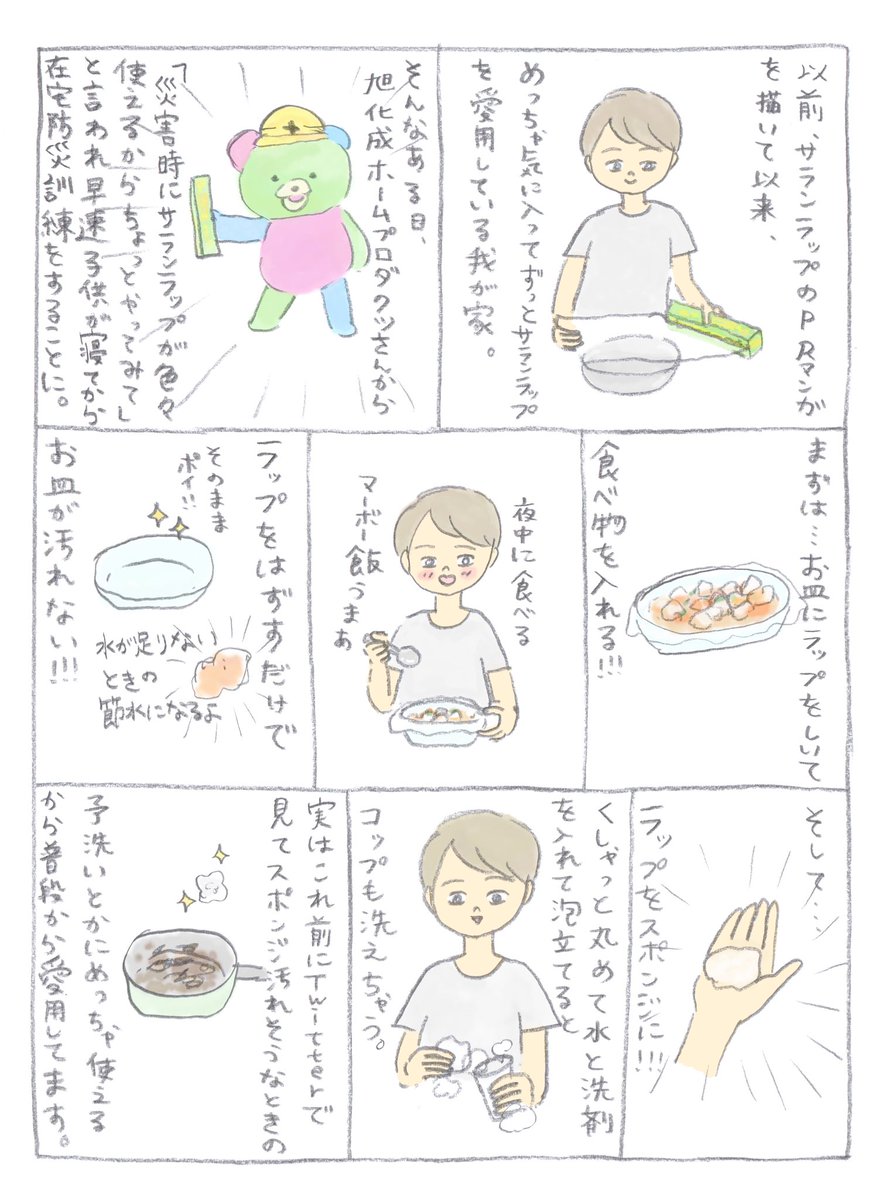 以前、サランラップのPRマンガ
を描いて以来、
めっちゃ気に入ってずっとサランラップ
を愛用している我が家。
そんなある日、
旭化成ホームプロダクツさんから
「災害時にサランラップが色々
使えるからちょっとやってみてし
と言われ早速子供が寝てから
在宅防災訓練をすることに。
まずは…お皿にラップをしいて
食べ物を入れる!!!
夜中に食べる
マーボー飯うまぁ
ラップをはずすだけで
そのまま
ポイ!!
水が足りない
ときの
節水になるよ
お皿が汚れない!!!
そして…
ラップをスポンジに!!!
くしゃっと丸めて水と洗剤
を入れて泡立てると
コップも洗えちゃう。
実はこれ前にTwitterで
見てスポンジ汚れそうなときの
予洗いとかにめっちゃ使える
から普段から愛用してます。